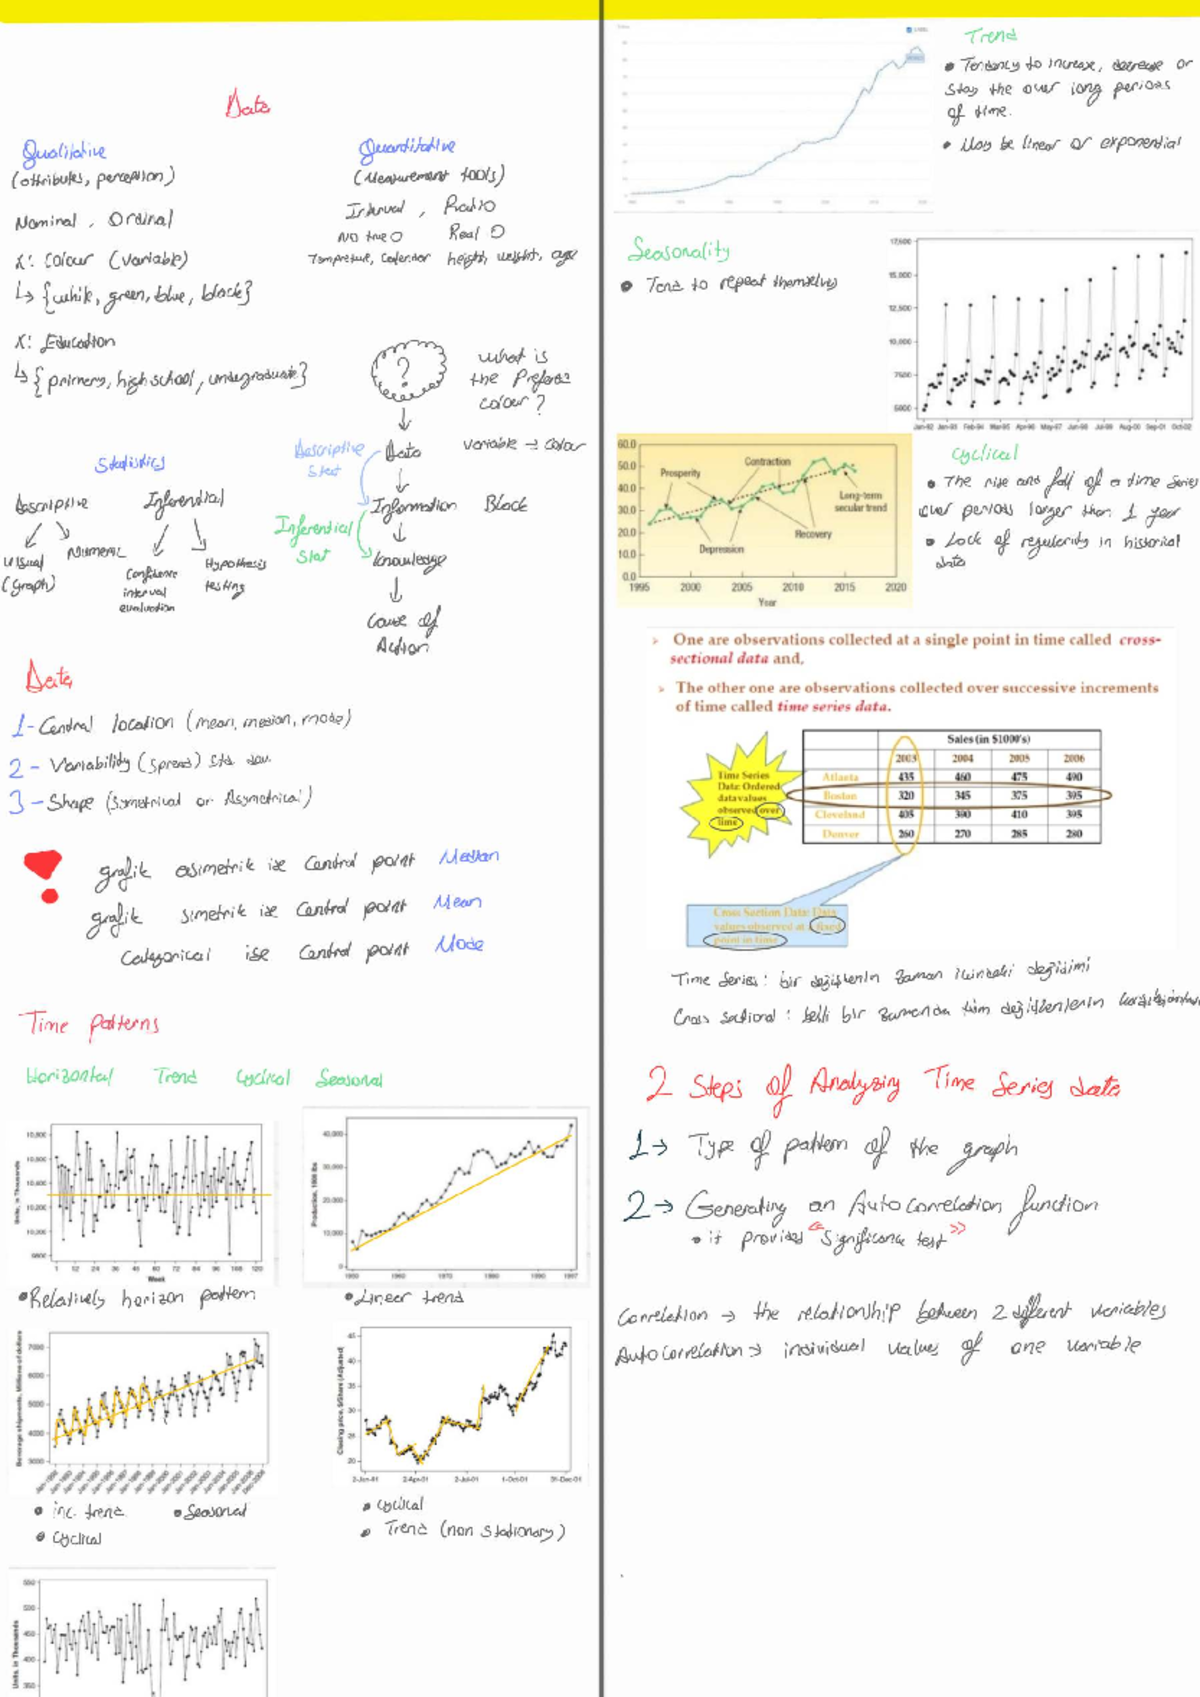 Data
Qualitative
(attributes, perception)
Nominal, Ordinal
X: Colour (variable)
↳ {white, green, blue, black}
X: Education
↳ {primary, high school, undergraduate}
Quantitative
(Measurement tools)
Interval, Ratio
No true 0 Real 0
height, weight, age
?
What is
the Prefers
colour?
Variable → Colour
Descriptive
Stat
Data
Information
Black
Inferential
Stat
Knowledge
Cause of
Action
Statistics
Descriptive Inferential
Visual
(graph)
Numeric
Confidence
interval
evaluation
Hypothesis
testing
Data
1- Central location (mean, median, mode)
2- Variability (spread) std dev.
3- Shape (Symetrical or Asymetrical)
grafik asimetrik ise Central point Median
grafik simetrik ise Central point Mean
Categorical ise Central point Mode
Time patterns
Horizontal Trend Cyclical Seasonal
Units, in Thousands
10,800
10,600
10,400
10,200
10,000
9800
1 12 24 36 48 60 72 84 96 108 120
Week
• Relatively horizon pattern
Production, 1000 lbs
40,000
30,000
20,000
10,000
0
1950 1960 1970 1980 1990 1997
• Linear trend
Beverage shipments, Millions of dollars
7000
6000
5000
4000
3000
• inc. trend • Seasonal
• Cyclical
Closing price, $/Share (Adjusted)
45
40
35
30
25
20
2-Jan-01 2-Apr-01 2-Jul-01 1-Oct-01 31-Dec-01
• Cyclical
• Trend (non stationary)
Units, in Thousands
550
500
450
400
350
Trend
• Tendency to increase, decrease or
stay the over long periods
of time.
• May be linear or exponential
Seasonality
• Tend to repeat themselves
17,500
15,000
12,500
10,000
7500
5000
Jan-92 Jan-93 Feb-94 Mar-95 Apr-96 May-97 Jun-98 Jul-99 Aug-00 Sep-01 Oct-02
60.0
50.0
40.0
30.0
20.0
10.0
0.0
Prosperity
Contraction
Long-term
secular trend
Recovery
Depression
1995 2000 2005 2010 2015 2020
Year
Cyclical
• The rise and fall of a time series
over periods larger than 1 year
• Lack of regularity in historical
data
➢ One are observations collected at a single point in time called cross-
sectional data and,
➢ The other one are observations collected over successive increments
of time called time series data.
Time Series
Data: Ordered
data values
observed over
time
Sales (in $1000's)
2003 2004 2005 2006
Atlanta 435 460 475 490
Boston 320 345 375 395
Cleveland 405 390 410 395
Denver 260 270 285 280
Cross Section Data: Data
values observed at a fixed
point in time
Time Series: bir değişkenin zaman içindeki değişimi
Cross sectional: belli bir zamanda tüm değişkenlerin
2 Steps of Analyzing Time Series data
1→ Type of pattern of the graph
2→ Generating an Autocorrelation function
• it provides "Significance test"
Correlation → the relationship between 2 different variables
Autocorrelation → individual values of one variable